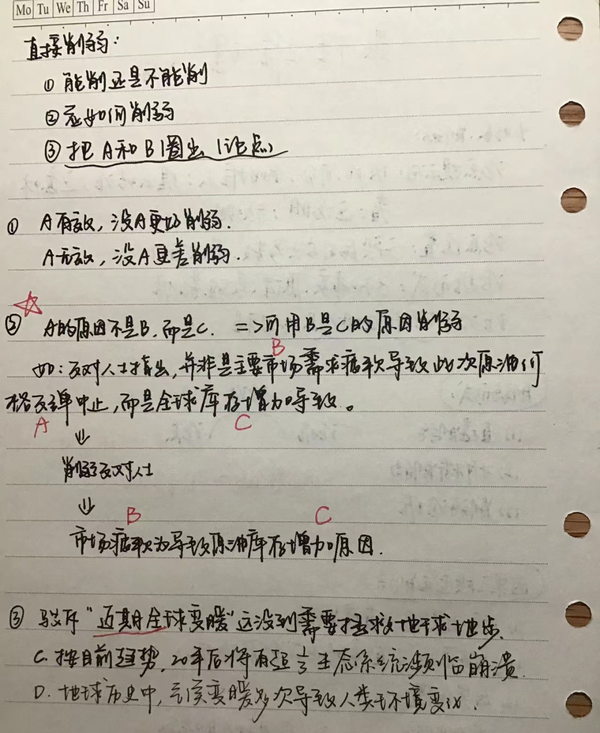 Mo Tu We Th Fr Sa Su
直接削弱:
① 能削还是不能削
② 应如何削弱
③ 把A和B圈出(论点)
① A有效,没A更好削弱.
A无效,没A更差削弱.
② A的原因不是B,而是C. =>可用B是C的原因削弱
B
如:反对人士指出,并非是主要市场需求疲软导致此次原油价
格反弹中止,而是全球库存增加导致。
A C
⇓
削弱反对人士
⇓
B C
市场疲软为导致原油库存增加原因.
③ 驳斥“近期全球变暖”还没到需要拯救地球地步.
C. 按目前趋势,20年后将有超⅓生态系统濒临崩溃.
D. 地球历史中,气候变暖多次导致人类环境变化.